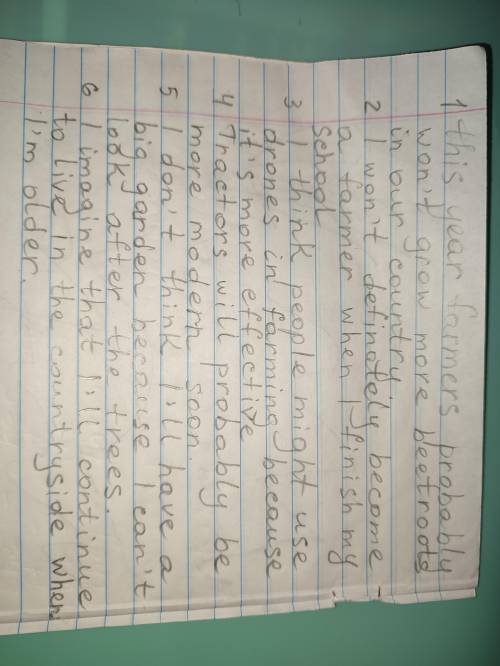 1 This year farmers probably
won't grow more beetroots
in our country.
2 I won't definately become
a farmer when I finish my
school
3 I think people might use
drones in farming because
it's more effective
4 Tractors will probably be
more modern soon.
5 I don't think I'll have a
big garden because I can't
look after the trees.
6 I imagine that I'll continue
to live in the countryside when
I'm older.